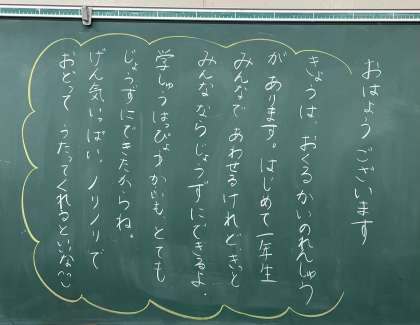 おはようございます
きょうは、おくるかいのれんしゅう
があります。はじめて一年生
みんなであわせるけれど、きっと
みんなならじょうずにできるよ。
学しゅうはっぴょうかいも、とても
じょうずにできたからね。
げん気いっぱい、ノリノリで
おどって うたってくれるといいな